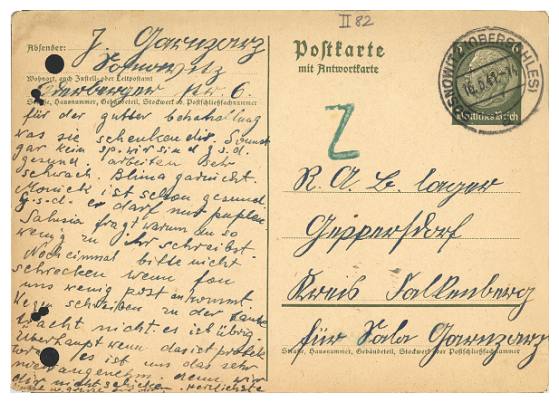 II 82
Absender: J. Garnzarz
Sosnowitz
Wohnort, auch Zustell- oder Leitpostamt
Oderberger Nr. 6.
Straße, Hausnummer, Gebäudeteil, Stockwerk od. Postschließfachnummer
für der gutter behandlung
was sie schenken dir. Sonnst
gar kein sp. wir sind g.s.d.
gesund. arbeiten sehr
schwach. Blima garnicht.
Moniek ist schon gesund
g.s.d. er darf nur
Salusia fragt warum du so
wenig zu ihr schreibst.
Nocheinmal bitte nicht
schrecken wenn fon
uns wenig post ankommt.
Wegen schreiben zu der
macht nicht es ist übrig
überhaupt wenn das ist
es ist uns das sehr
unangenehm. denn wir
dir nicht schicken. herzlichste
Postkarte
mit Antwortkarte
SOSNOWITZ (OBERSCHLES)
16.6.41-14
6
Deutsches Reich
Z
R. A. B. lager
Geppersdorf
Kreis Falkenberg
für Sala Garnzarz
Straße, Hausnummer, Gebäudeteil, Stockwerk oder Postschließfachnummer